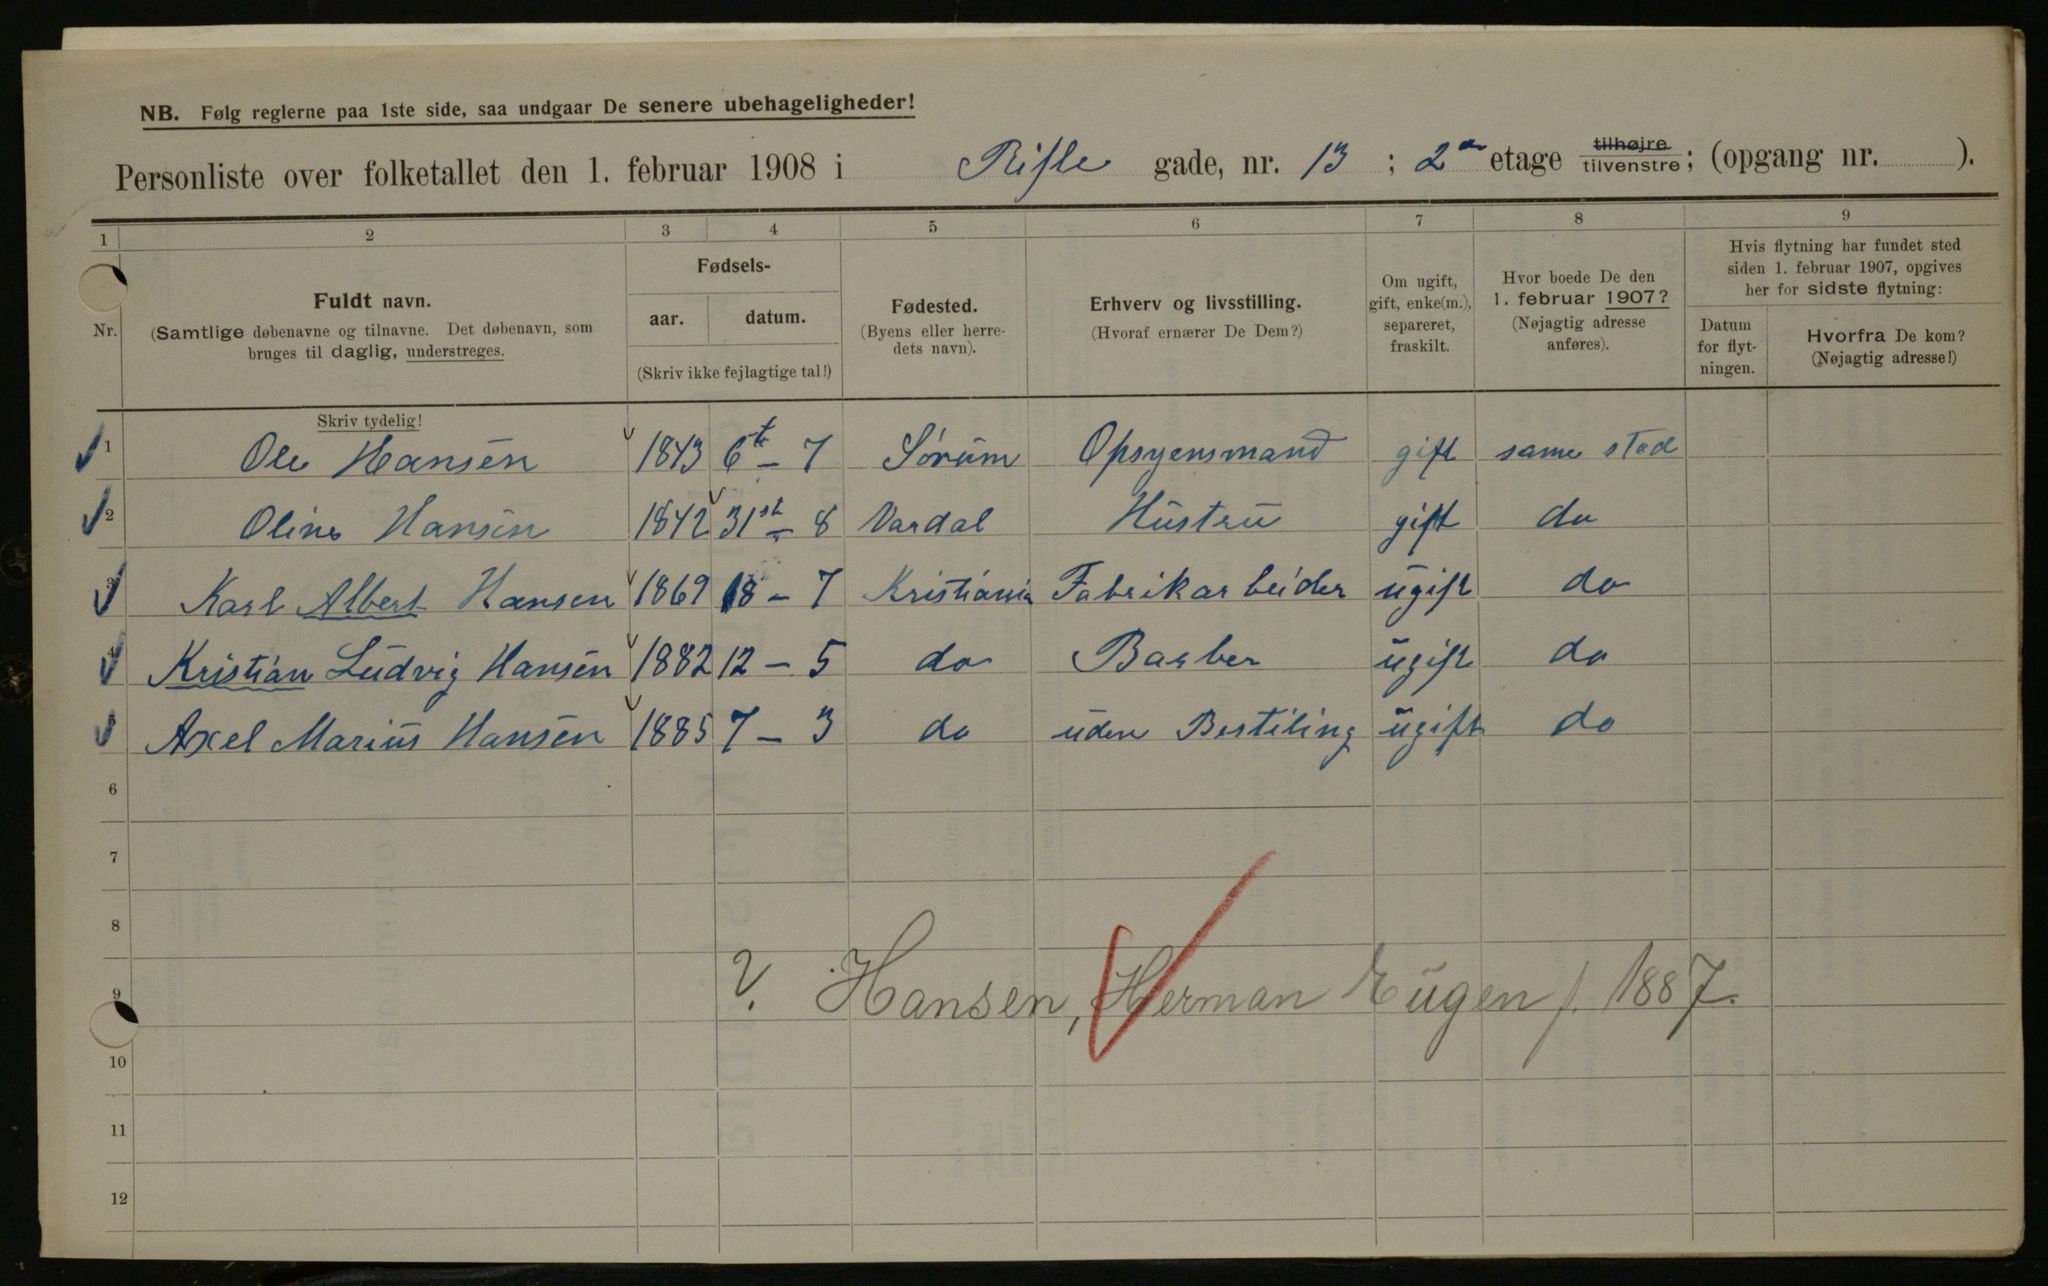 NB. Følg reglerne paa 1ste side, saa undgaar De senere ubehageligheder!
Personliste over folketallet den 1. februar 1908 i Rifle gade, nr. 13 ; 2den etage tilhøjre tilvenstre; (opgang nr. ).
1 2 3 4 5 6 7 8 9
Nr. Fuldt navn. (Samtlige døbenavne og tilnavne. Det døbenavn, som bruges til daglig, understreges.
Fødsels-
aar. datum.
(Skriv ikke fejlagtige tal!)
Fødested. (Byens eller herredets navn).
Erhverv og livsstilling. (Hvoraf ernærer De Dem?)
Om ugift, gift, enke(m.), separeret, fraskilt.
Hvor boede De den 1. februar 1907? (Nøjagtig adresse anføres).
Hvis flytning har fundet sted siden 1. februar 1907, opgives her for sidste flytning:
Datum for flyt-ningen.
Hvorfra De kom? (Nøjagtig adresse!)
Skriv tydelig!
1 Ole Hansen 1843 6te – 7 Sørum Opsyensmand gift same sted
2 Oline Hansen 1842 31st – 8 Vardal Hustru gift do
3 Karl Albert Hansen 1869 18 – 7 Kristiania Fabrikarbeider ugift do
4 Kristian Ludvig Hansen 1882 12 – 5 do Barber ugift do
5 Axel Marius Hansen 1885 7 – 3 do uden Bestiling ugift do
6
7
8
9 V. Hansen, Herman Eugen f. 1887.
10
11
12